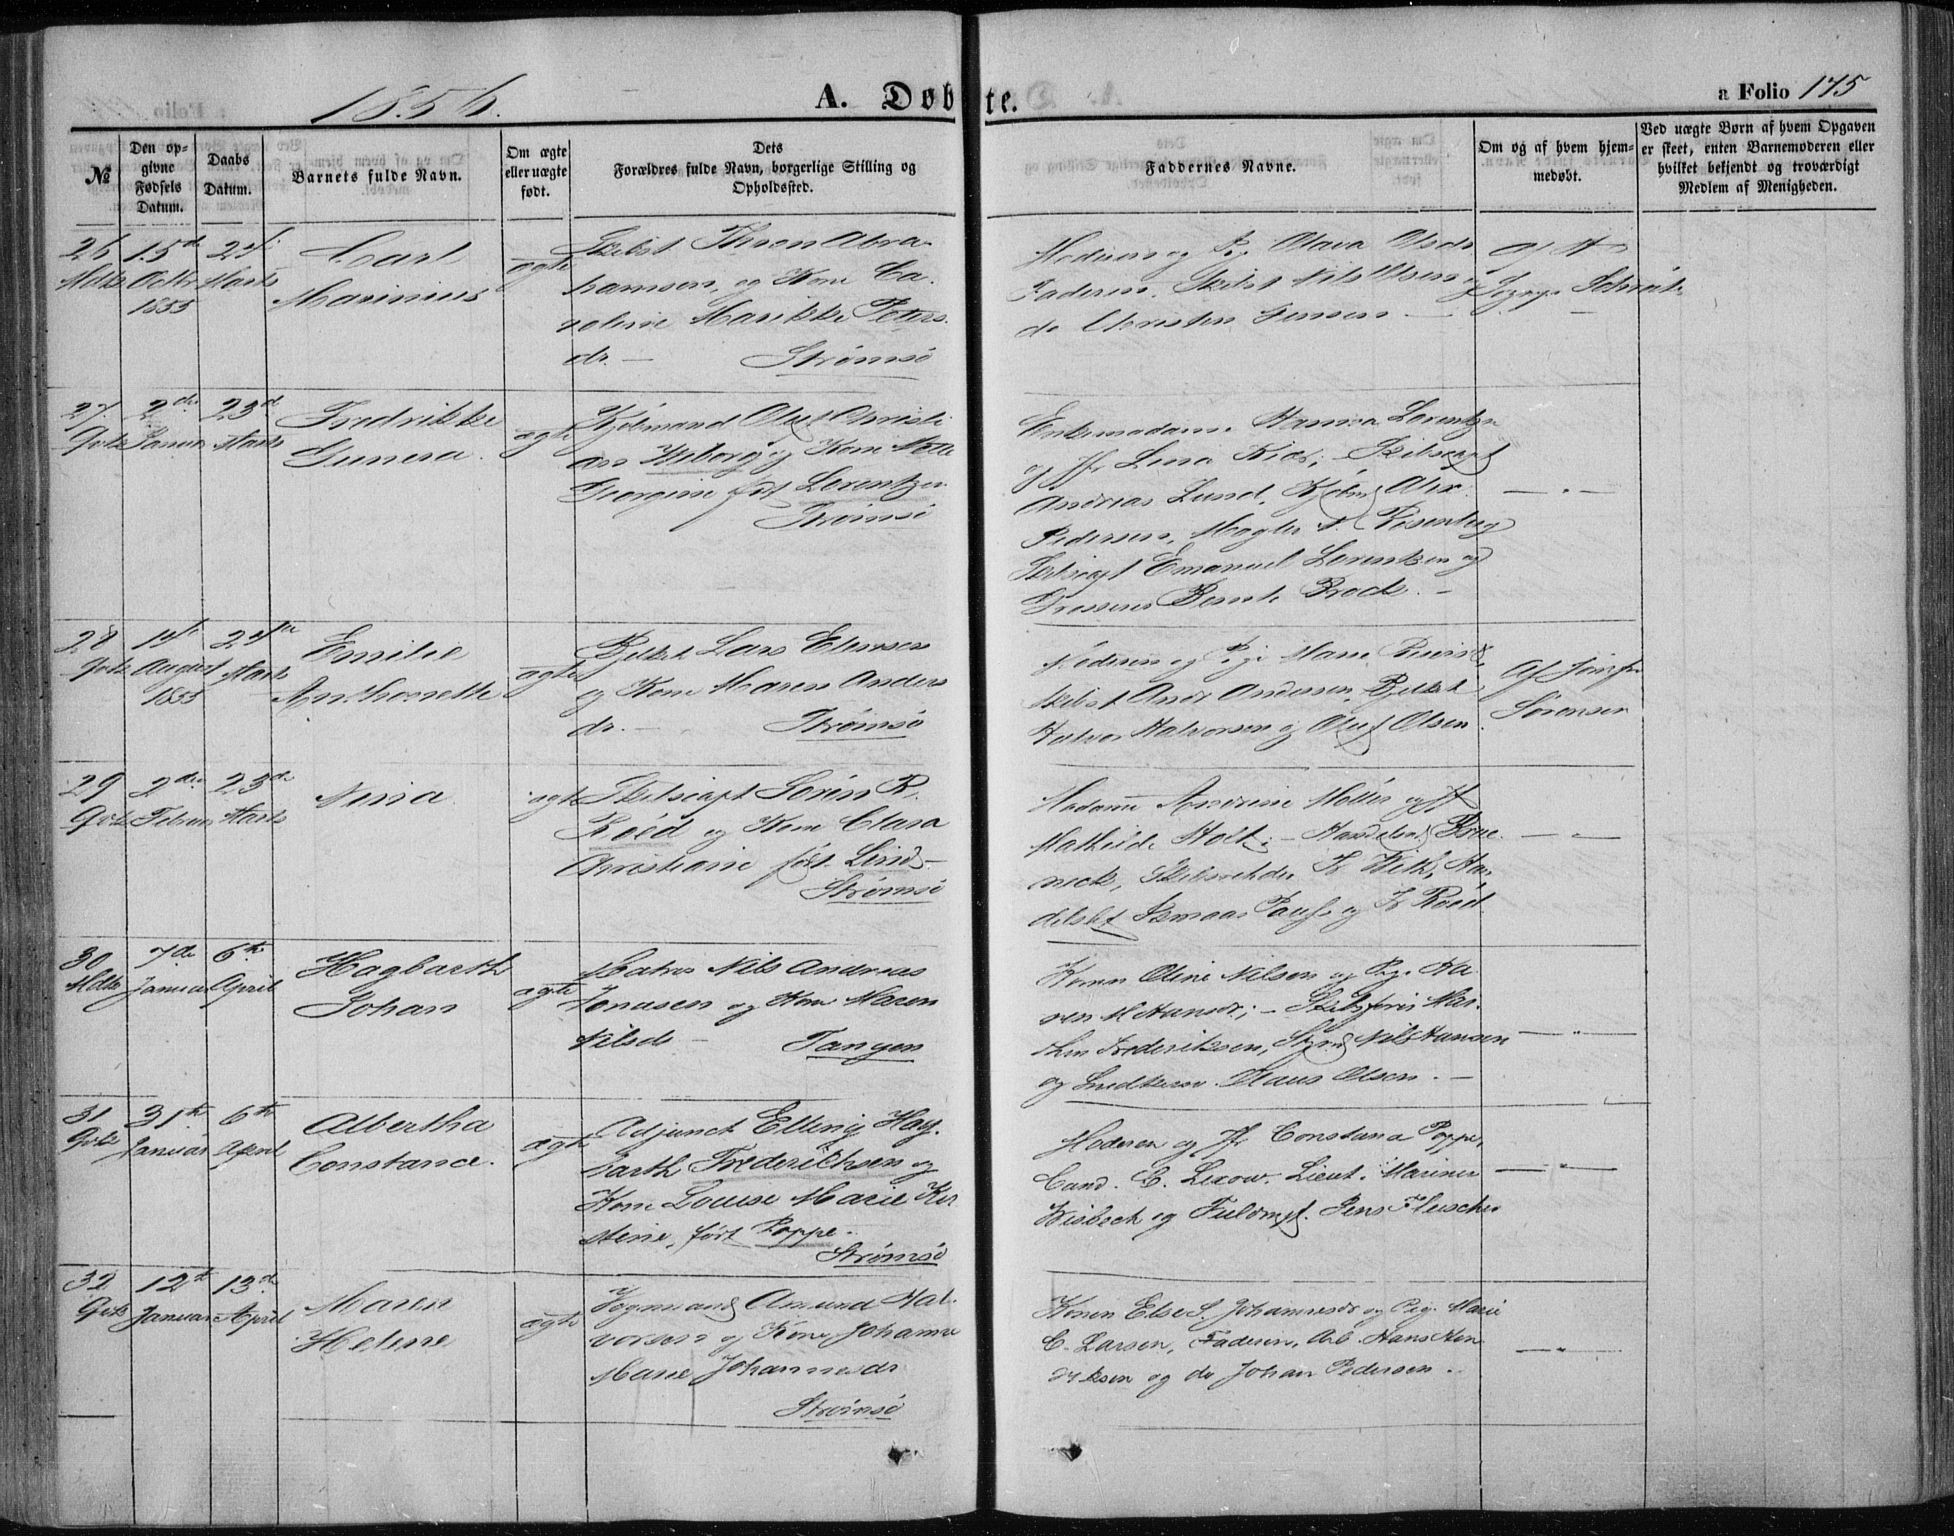 1856.
A. Døbte.
a Folio 175
№
Den op-
givne
Fødsels
Datum.
Daabs
Datum.
Barnets fulde Navn.
Om ægte
eller uægte
født.
Dets
Forældres fulde Navn, borgerlige Stilling og
Opholdssted.
Faddernes Navne.
Om og af hvem hjem-
medøbt.
Ved uægte Børn af hvem Opgaven
er skeet, enten Barnemoderen eller
hvilket bekjendt og troværdigt
Medlem af Menigheden.
26
15de
Octbr
1855
Marts
Carl
Marinius
ægte
Skibst Thron Abra-
hamsen, og Kone Ca-
roline Marikke Peters-
dr. — Strømsø
Moderen og Pig Olava Olsdr
Faderen, Skibst Nils Olsen og
do Christen Jensen —
27.
2den
Januar
23de
Marts
Fredrikke
Gunera.
ægte
Kjøbmand Oluf Christi
an og Kone
Georgine født Lorentzen
Strømsø
Enkemadame Hanna Lorentzen
og Jfr Lina Kiær; Skibscapt
Andreas Lund, Kjøbmd Alex.
Pedersen, Mægler Rosenberg
Skibscapt Emanuel Lorentzen og
Bernt Brock. —
— " —
28
14de
August
1855
24de
Marts
Emilie
Anthonette
ægte
Lars Ellingsen
og Kone Maren Anders
dr. — Strømsø
Moderen og Pige Maren
Skibst Andr Andersen,
Halvor Halvorsen og Oluf Olsen.
Af Jomfr
Sørensen
29
2den
Februar
23de
Marts
Nina
ægte
Skibscapt Søren R.
Røed og Kone Clara
Christiane født Lind —
Strømsø
Madame Andrine Møller og Jfr
Mathilde Holt; — Handelsmd
Skibsrheder Fr Wilh. Han
delsbet og Fr Røed
— " —
30
7de
Januar
6te
April
Hagbarth
Johan
ægte
Matros Nils Andreas
Jonasen og Kone Maren
Nilsdr — Tangen
Konen Oline Nilsen og Pige Ka
ren M Hansdr; — Skibsfører Mar-
thin Frederiksen, Nils Hansen
og Claus Olsen. —
— " —
31
31te
Januar
6te
April
Albertha
Constance.
ægte
Adjunct Elling Hag-
barth Frederichsen og
Kone Louise Marie Kir
stine, født Poppe.
Strømsø
Moderen og Jfr Constana Poppe,
Cand. C. Lexow. Lieut. Mariner
Wisbech og Fuldmgt. Jens Fleischer
— " —
32
12te
Januar
13de
April
Maren
Helene
ægte
Vognmand Amund Hal-
vorsen og Kone Johanne
Marie Johannesdr
Strømsø
Konen Else S. Johannesdr og Pige Marie
C. Larsen, Faderen, Arb. Hans Hen
driksen og do Johan Pedersen.
— " —